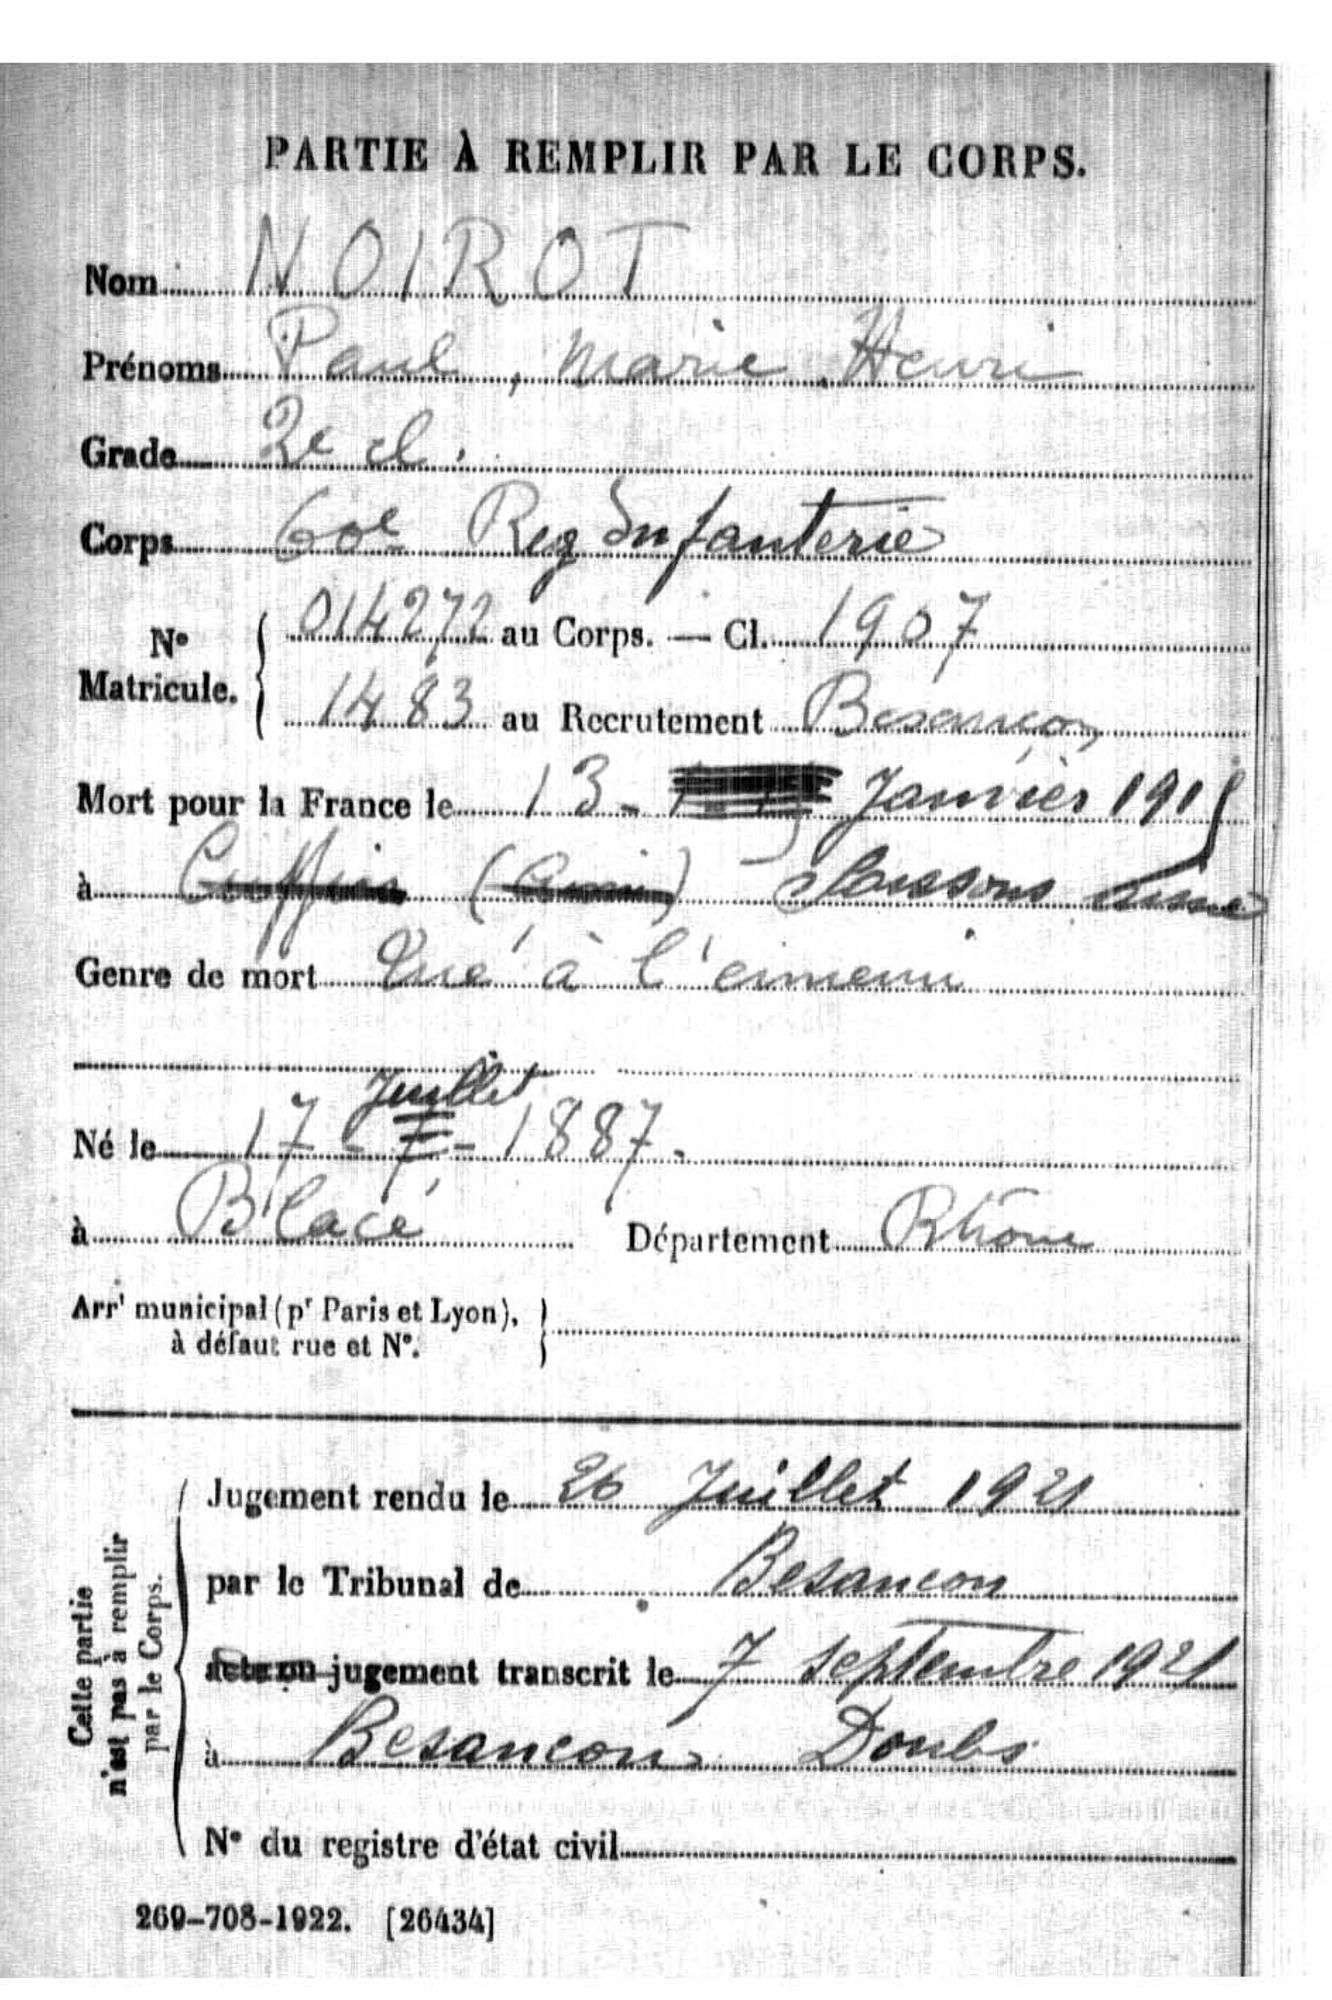 PARTIE À REMPLIR PAR LE CORPS.
Nom NOIROT
Prénoms Paul, Marie, Henri
Grade 2e cl.
Corps 60e Reg Infanterie
No Matricule. { 014272 au Corps. — Cl. 1907
1483 au Recrutement Besançon
Mort pour la France le 13 - Janvier 1915
à Cuffies (Aisne) Soissons Aisne
Genre de mort Tué à l'ennemi
Juillet
Né le 17 - 7 - 1887.
à Blacé Département Rhône
Arrt municipal (pr Paris et Lyon), }
à défaut rue et No.
Cette partie n'est pas à remplir par le Corps.
Jugement rendu le 26 Juillet 1921
par le Tribunal de Besancon
acte ou jugement transcrit le 7 septembre 1921
à Besancon Doubs
No du registre d'état civil
269-708-1922. [26434]